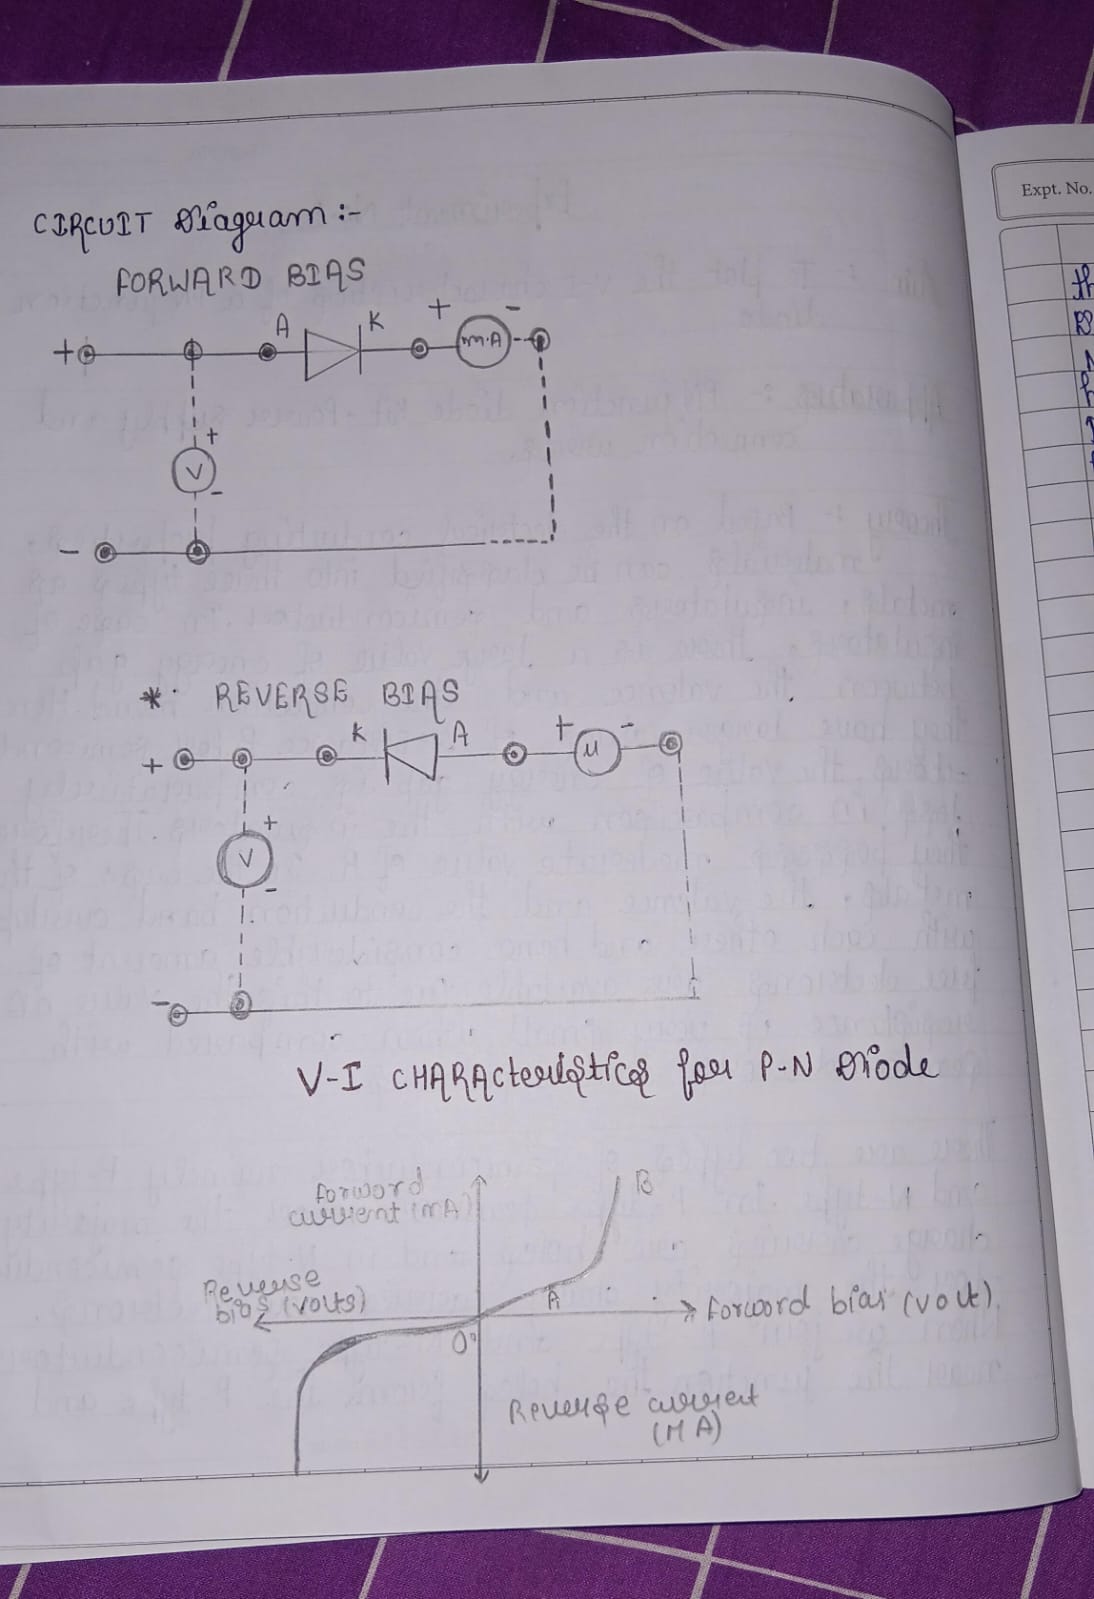 CIRCUIT Diagram :-
FORWARD BIAS
+ A K + m.A -
+
V
-
-
* REVERSE BIAS
+ K A + μ -
+
V
-
-
V-I CHARActeristics for P-N Diode
forword
current (mA)
B
Reverse
bias (volts)
A
forword bias (vout)
O
Reverse current
(MA)
Expt. No.